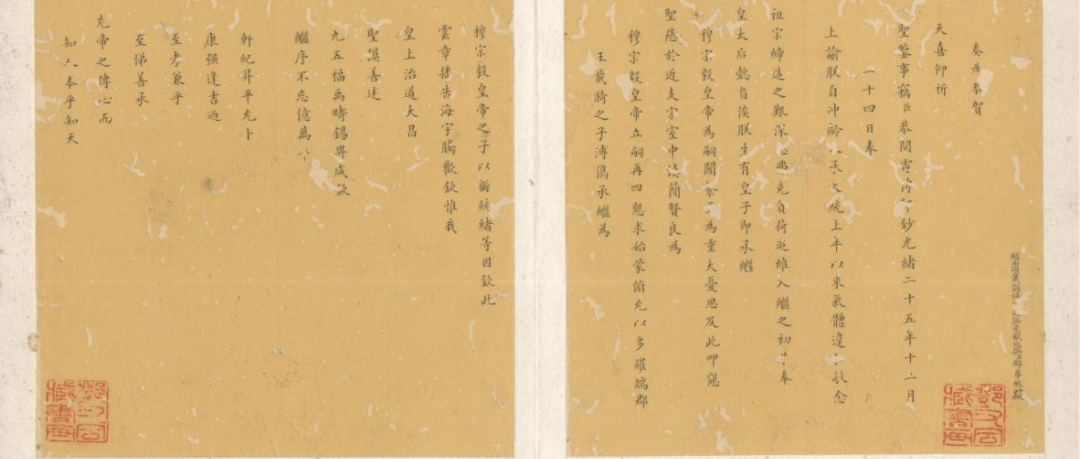 奏為恭賀
天喜仰祈
聖鑒事竊臣恭閱電傳鈔光緒二十五年十二月
一十四日奉
上諭朕自沖齡承大統上年以來氣體違敬念
祖宗締造之艱深恐弗克負荷追維入繼之初奉
皇太后懿旨俟朕生有皇子即承繼
穆宗毅皇帝為嗣關係為重大憂思及此叩懇
聖慈於近支宗室中慎簡賢良為
穆宗毅皇帝立嗣再四懇求始蒙俯允以多羅端郡
王載漪之子溥儁承繼為
穆宗毅皇帝之子以綿統緒等因欽此
雲章播告海宇臚歡欽惟我
皇上治道大昌
聖謨善述
九五福禹疇錫昇咸欽
繼序不忘億萬
軒紀昇平允卜
康强逢吉迺
至孝兼乎
至悌善承
先帝之傳心而
知人本乎知天